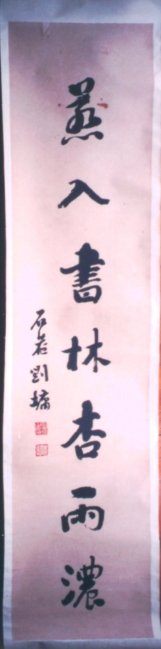 燕入書林杏雨濃
石菴劉墉